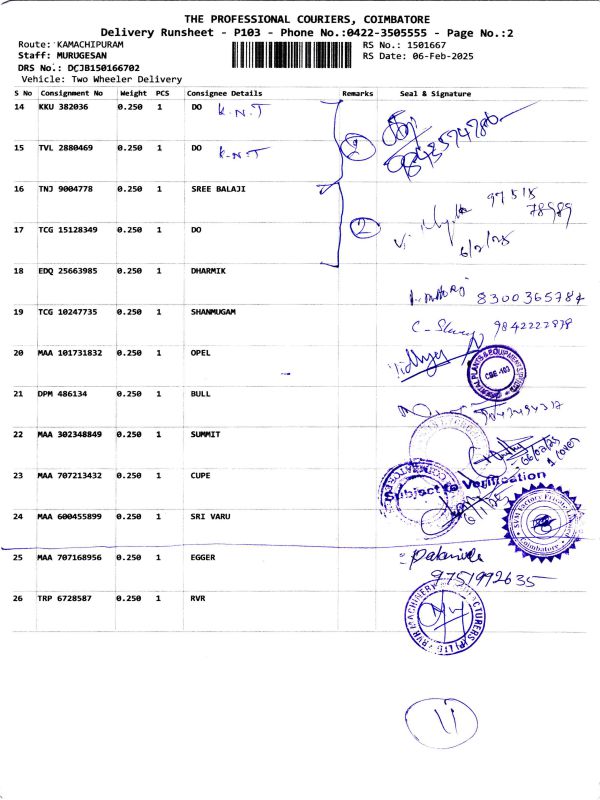 THE PROFESSIONAL COURIERS, COIMBATORE
Delivery Runsheet - P103 - Phone No.:0422-3505555 - Page No.:2
Route: KAMACHIPURAM RS No.: 1501667
Staff: MURUGESAN RS Date: 06-Feb-2025
DRS No.: DCJB150166702
Vehicle: Two Wheeler Delivery
S No Consignment No Weight PCS Consignee Details Remarks Seal & Signature
14 KKU 382036 0.250 1 DO K.N.T
15 TVL 2880469 0.250 1 DO K.N.T 2
16 TNJ 9004778 0.250 1 SREE BALAJI 97518
78989
17 TCG 15128349 0.250 1 DO 2 6/2/25
18 EDQ 25663985 0.250 1 DHARMIK 8300365784
19 TCG 10247735 0.250 1 SHANMUGAM 9842222878
20 MAA 101731832 0.250 1 OPEL Vidhya CBE-103
21 DPM 486134 0.250 1 BULL
22 MAA 302348849 0.250 1 SUMMIT 06/02/25
1 cover
23 MAA 707213432 0.250 1 CUPE Subject to Verification
24 MAA 600455899 0.250 1 SRI VARU Coimbatore
25 MAA 707168956 0.250 1 EGGER
9751992635
26 TRP 6728587 0.250 1 RVR RVR MACHINERY MANUFACTURERS (P) LTD
11